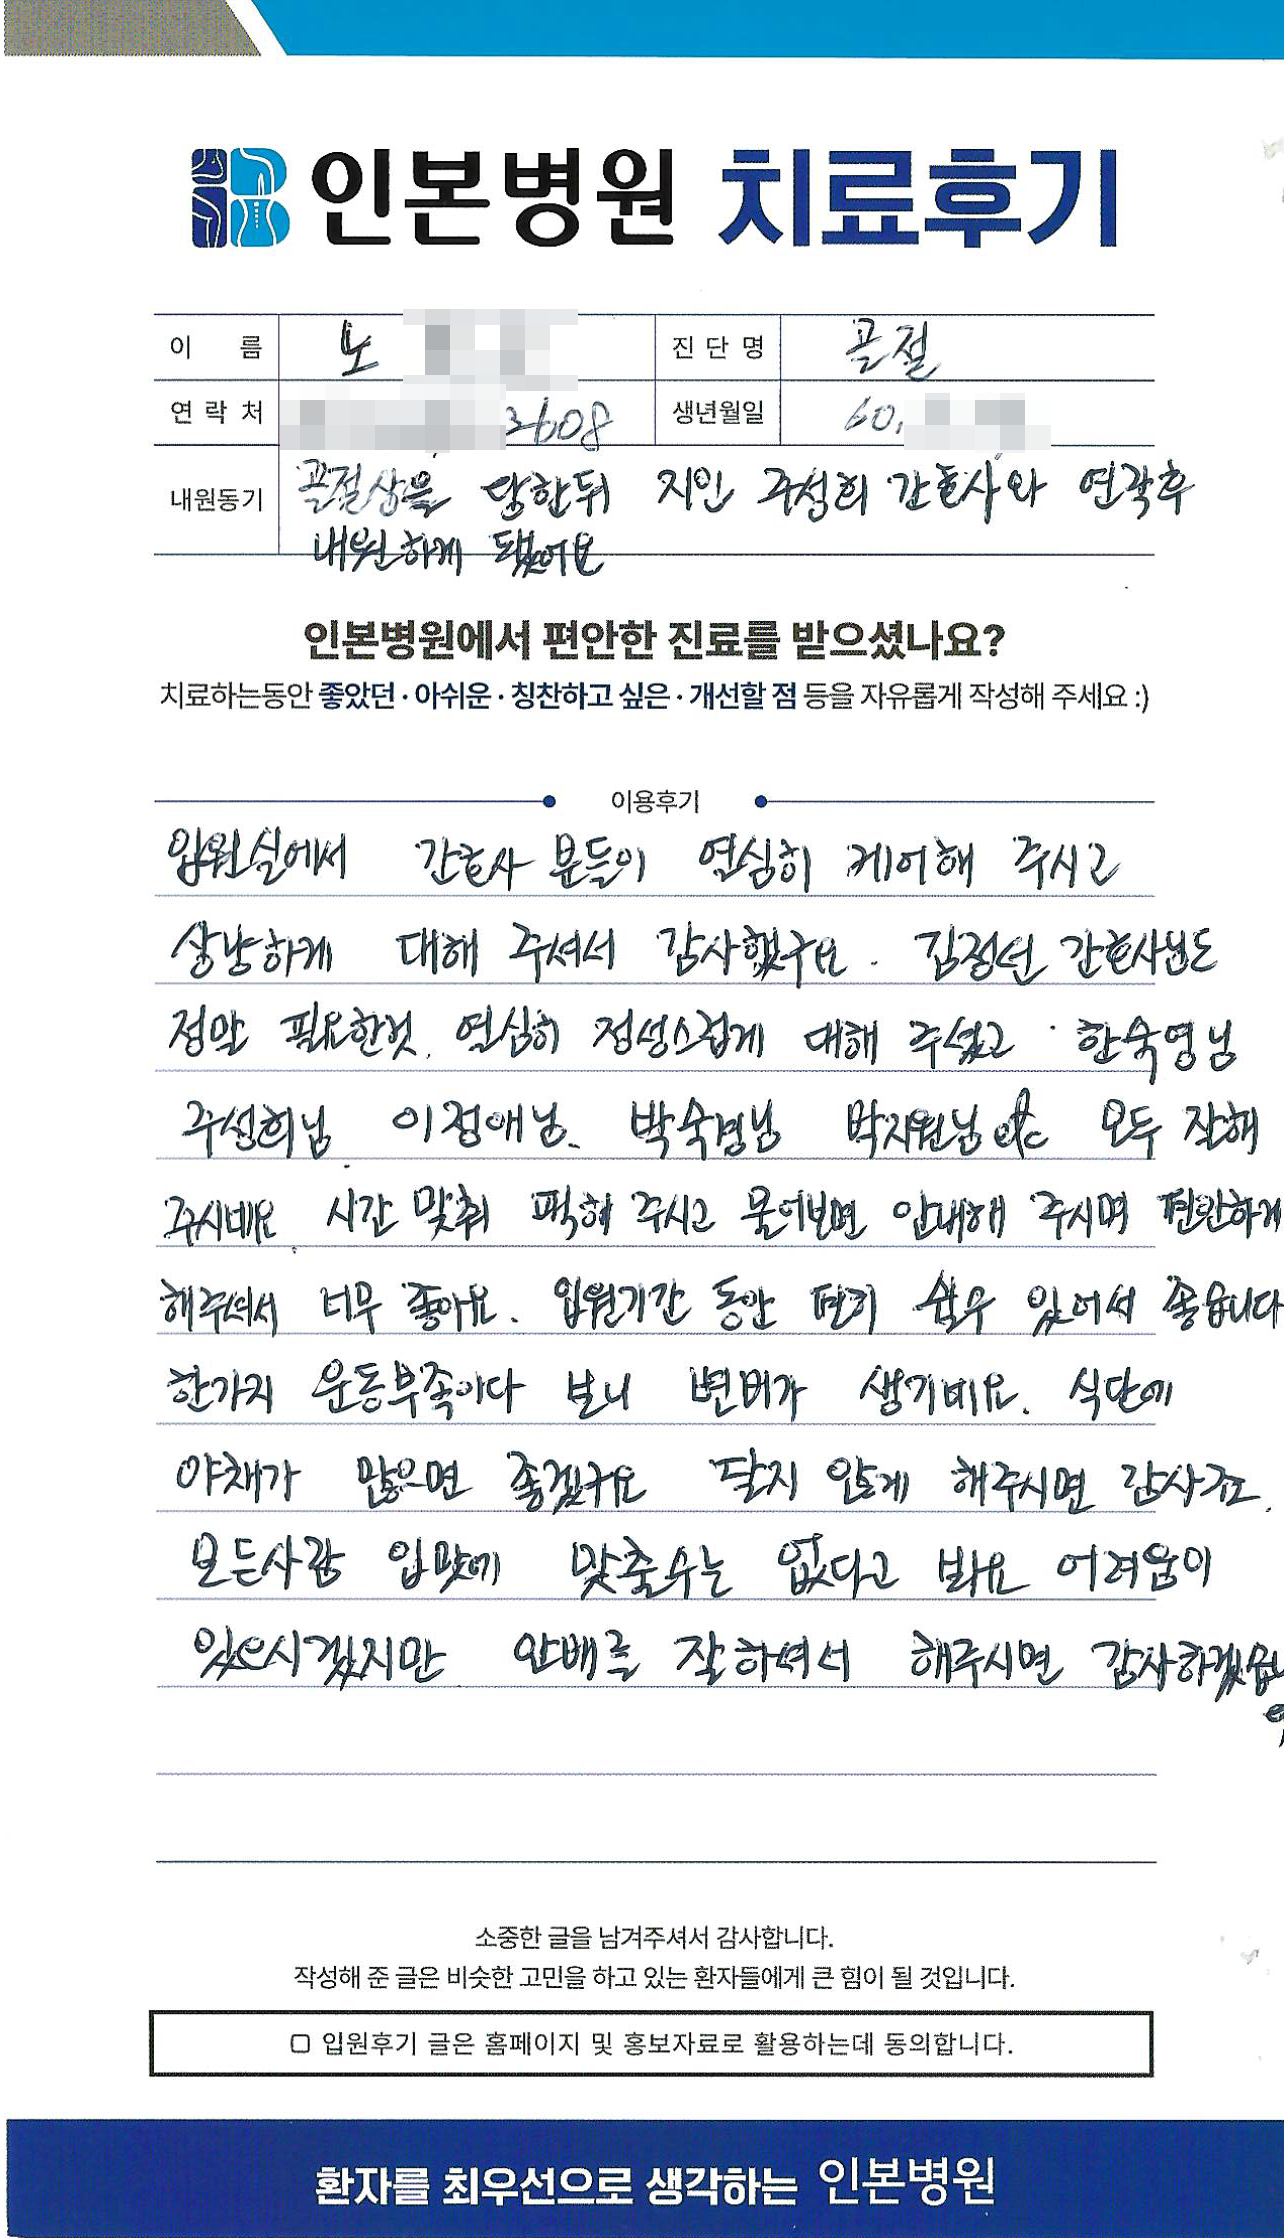 인본병원 치료후기
이 름 노 진 단 명 골절
연 락 처 3608 생년월일 60.
내원동기 골절상을 당한뒤 지인 주성희 간호사와 연락후
내원하게 됐어요
인본병원에서 편안한 진료를 받으셨나요?
치료하는동안 좋았던 · 아쉬운 · 칭찬하고 싶은 · 개선할 점 등을 자유롭게 작성해 주세요 :)
이용후기
입원실에서 간호사 분들이 열심히 케어해 주시고
상냥하게 대해 주셔서 감사했구요. 김정선 간호사님도
정말 필요한것. 열심히 정성스럽게 대해 주셨고 한숙영님
주성희님 이정애님. 박숙경님 박지원님 etc 모두 잘해
주시네요 시간 맞춰 픽해 주시고 물어보면 안내해 주시며 편안하게
해주셔서 너무 좋아요. 입원기간 동안 편히 쉴수 있어서 좋습니다
한가지 운동부족이다 보니 변비가 생기네요. 식단에
야채가 많으면 좋겠구요 달지 않게 해주시면 감사죠.
모든사람 입맛에 맞출수는 없다고 봐요 어려움이
있으시겠지만 안배를 잘하셔서 해주시면 감사하겠습니
소중한 글을 남겨주셔서 감사합니다.
작성해 준 글은 비슷한 고민을 하고 있는 환자들에게 큰 힘이 될 것입니다.
입원후기 글은 홈페이지 및 홍보자료로 활용하는데 동의합니다.
환자를 최우선으로 생각하는 인본병원